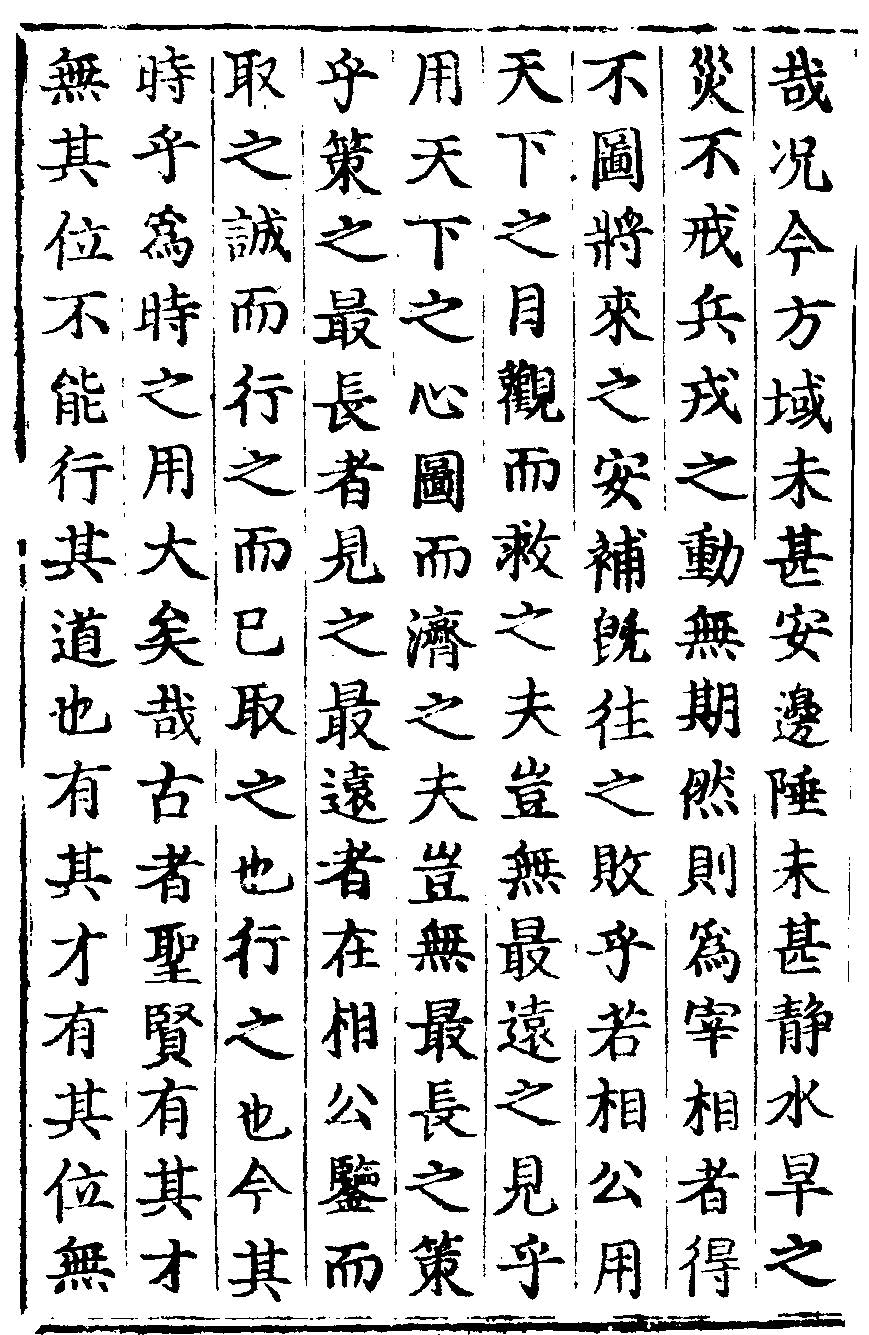 哉况今方域未甚安邊陲未甚静水旱之
災不戒兵戎之動無期然則爲宰相者得
不圖將來之安補旣往之敗乎若相公用
天下之目觀而救之夫豈無最遠之見乎
用天下之心圖而濟之夫豈無最長之策
乎策之最長者見之最遠者在相公鑒而
取之誠而行之而已取之也行之也今其
時乎爲時之用大矣哉古者聖賢有其才
無其位不能行其道也有其才有其位無